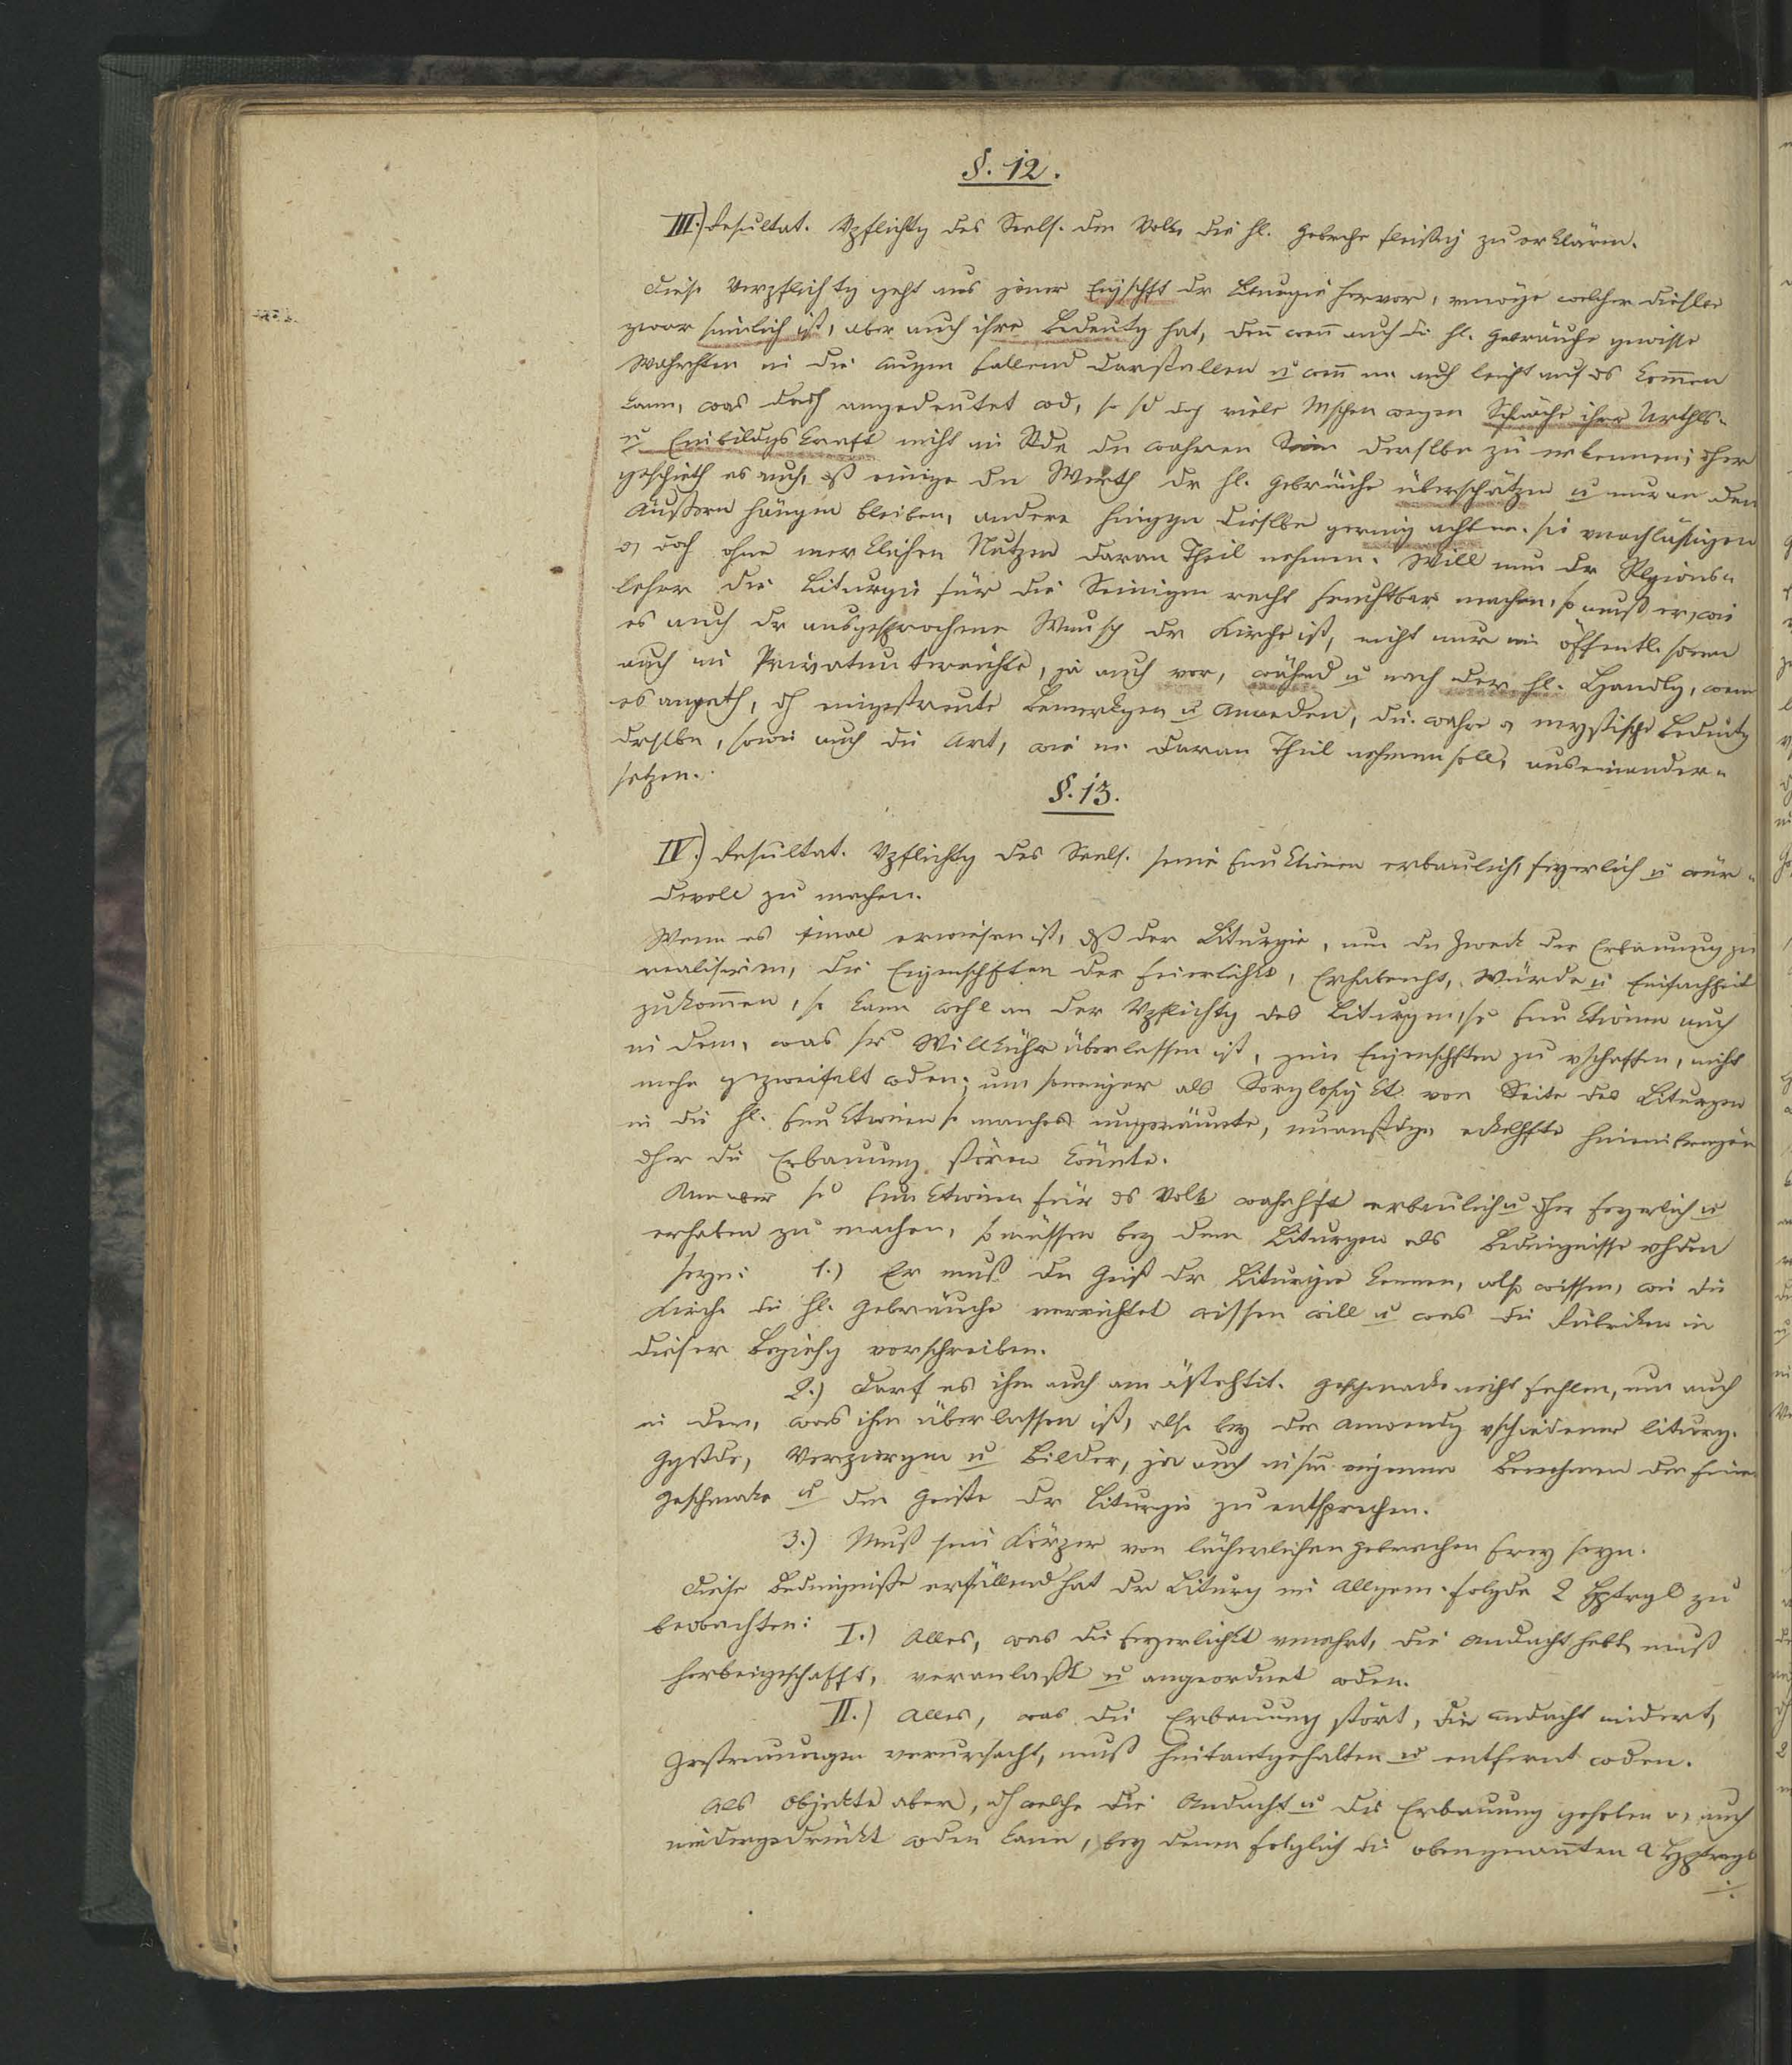 §. 12.
III.) Resultat. Vpflichtg des Seels. dem Volke die hl. Gebrche fleißig zu erklären.
Diese Verpflichtg geht aus jener Eigschft dr Liturgie hervor, vmöge welcher dieselbe
zwar sinnlich ist, aber auch ihre Bedeutg hat, denn wenn auch die hl. Gebräuche gewisse
Wahrhten in die Augen fallend darstellen u wenn man auch leicht auf das kommen
kann, was durch angedeutet wd, so sd doch viele Mschen wegen Schwäche ihrer Urthls-
u Einbildgskraft nicht im Stde den wahren Sinn derselben zu erkennen; dher
geschieht es auch, dß einige den Werth dr hl. Gebräuche überschätzen u nur an dem
Äußern hängen bleiben, andere hinggn dieselbe gering achten. sie vnachläßigen
o, doch ohne merklichen Nutzen daran Theil nehmen. Will nun dr Rlgions-
lehrer die Liturgie für die Seinigen recht fruchtbar machen, so muß er, wie
es auch dr ausgesprochene Wunsch dr Kirche ist, nicht nur im öffentl. sondern
auch im Privatunterrichte, ja auch vor, währnd u nach der hl. Handlg, wenn
es angeth, dch eingestreute Bemerkgen u Anreden, die wahre o mystische Bedeutg
drslben, sowie auch die Art, wie man daran Theil nehmen soll, auseinander-
setzen.
§. 13.
IV.) Resultat. Vpflichtg des Seels. seine Funktionen erbaulich, feyerlich u wür-
devoll zu machen.
Wenn es einmal erwiesen ist, dß der Liturgie, um den Zweck der Erbauung zu
realisiren, die Eigenschften der Feierlichkt, Erhabenht, Würde u Einfachheit
zukommen, so kann wohl an der Vpflichtg des Liturgen, sr Funktionen auch
in dem, was sr Willkühr überlassen ist, jene Eigenschften zu vschaffen, nicht
mehr gezweifelt wden; um soweniger als Sorglosigkt von Seite des Liturgen
in die hl. Funktionen so manches ungeräumte, unanstdge, eckelhfte hineinbringen
dher die Erbauung stören könnte.
Um se Funktionen für ds Volk wahrhft erbaulich u dher feyerlich u
erhaben zu machen, so müssen bey dem Liturgen als Bedingnisse vhden
seyn: 1.) Er muß den Geist dr Liturgie kennen, also wissen, wie die
Kirche die hl. Gebräuche verrichtet wissen will u was die Rubriken in
dieser Beziehg vorschreiben.
2.) Darf es ihm auch am ästehtit. Geschmacke nicht fehlen, um auch
in dem, was ihm überlassen ist, also bey der Anwendg vschiedener liturg.
Ggstde, Verziergen u Bilder, ja auch in sm eigenen Benehmen den feinen
Geschmake u dem Geiste dr Liturgie zu entsprechen.
3.) Muß sein Körper von lächerlichen Gebrechen frey seyn.
Diese Bedingniße erfüllend hat dr Liturg im Allgem. folgde 2 Hptrgl zu
beobachten: I.) Alles, was die Feyerlichkt vmehrt, die Andacht hebt, muß
herbeigeschafft, veranlaßt u angeordnet wden.
II.) Alles, was die Erbauung stört, die Andacht mindert,
Zerstreuungen verursacht, muß hintantgehalten u entfernt wden.
Als Objekte aber, dch welche die Andacht u die Erbauung gehoben o, auch
niedergedrückt wden kann, bey denen folglich die obengenannten 2 Hptregl
./.